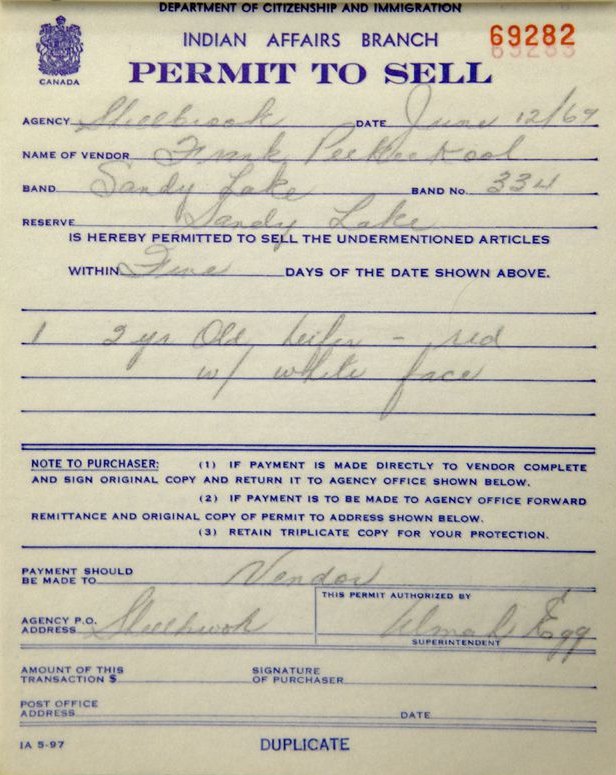 DEPARTMENT OF CITIZENSHIP AND IMMIGRATION
CANADA
INDIAN AFFAIRS BRANCH
69282
PERMIT TO SELL
AGENCY Shellbrook DATE June 12/69
NAME OF VENDOR Frank
BAND Sandy Lake BAND No. 334
RESERVE Sandy Lake
IS HEREBY PERMITTED TO SELL THE UNDERMENTIONED ARTICLES
WITHIN Five DAYS OF THE DATE SHOWN ABOVE.
1 2 yr Old heifer - red
w/ white face
NOTE TO PURCHASER: (1) IF PAYMENT IS MADE DIRECTLY TO VENDOR COMPLETE
AND SIGN ORIGINAL COPY AND RETURN IT TO AGENCY OFFICE SHOWN BELOW.
(2) IF PAYMENT IS TO BE MADE TO AGENCY OFFICE FORWARD
REMITTANCE AND ORIGINAL COPY OF PERMIT TO ADDRESS SHOWN BELOW.
(3) RETAIN TRIPLICATE COPY FOR YOUR PROTECTION.
PAYMENT SHOULD
BE MADE TO Vendor
THIS PERMIT AUTHORIZED BY
AGENCY P.O.
ADDRESS Shellbrook
SUPERINTENDENT
AMOUNT OF THIS
TRANSACTION $
SIGNATURE
OF PURCHASER
POST OFFICE
ADDRESS DATE
IA 5-97 DUPLICATE